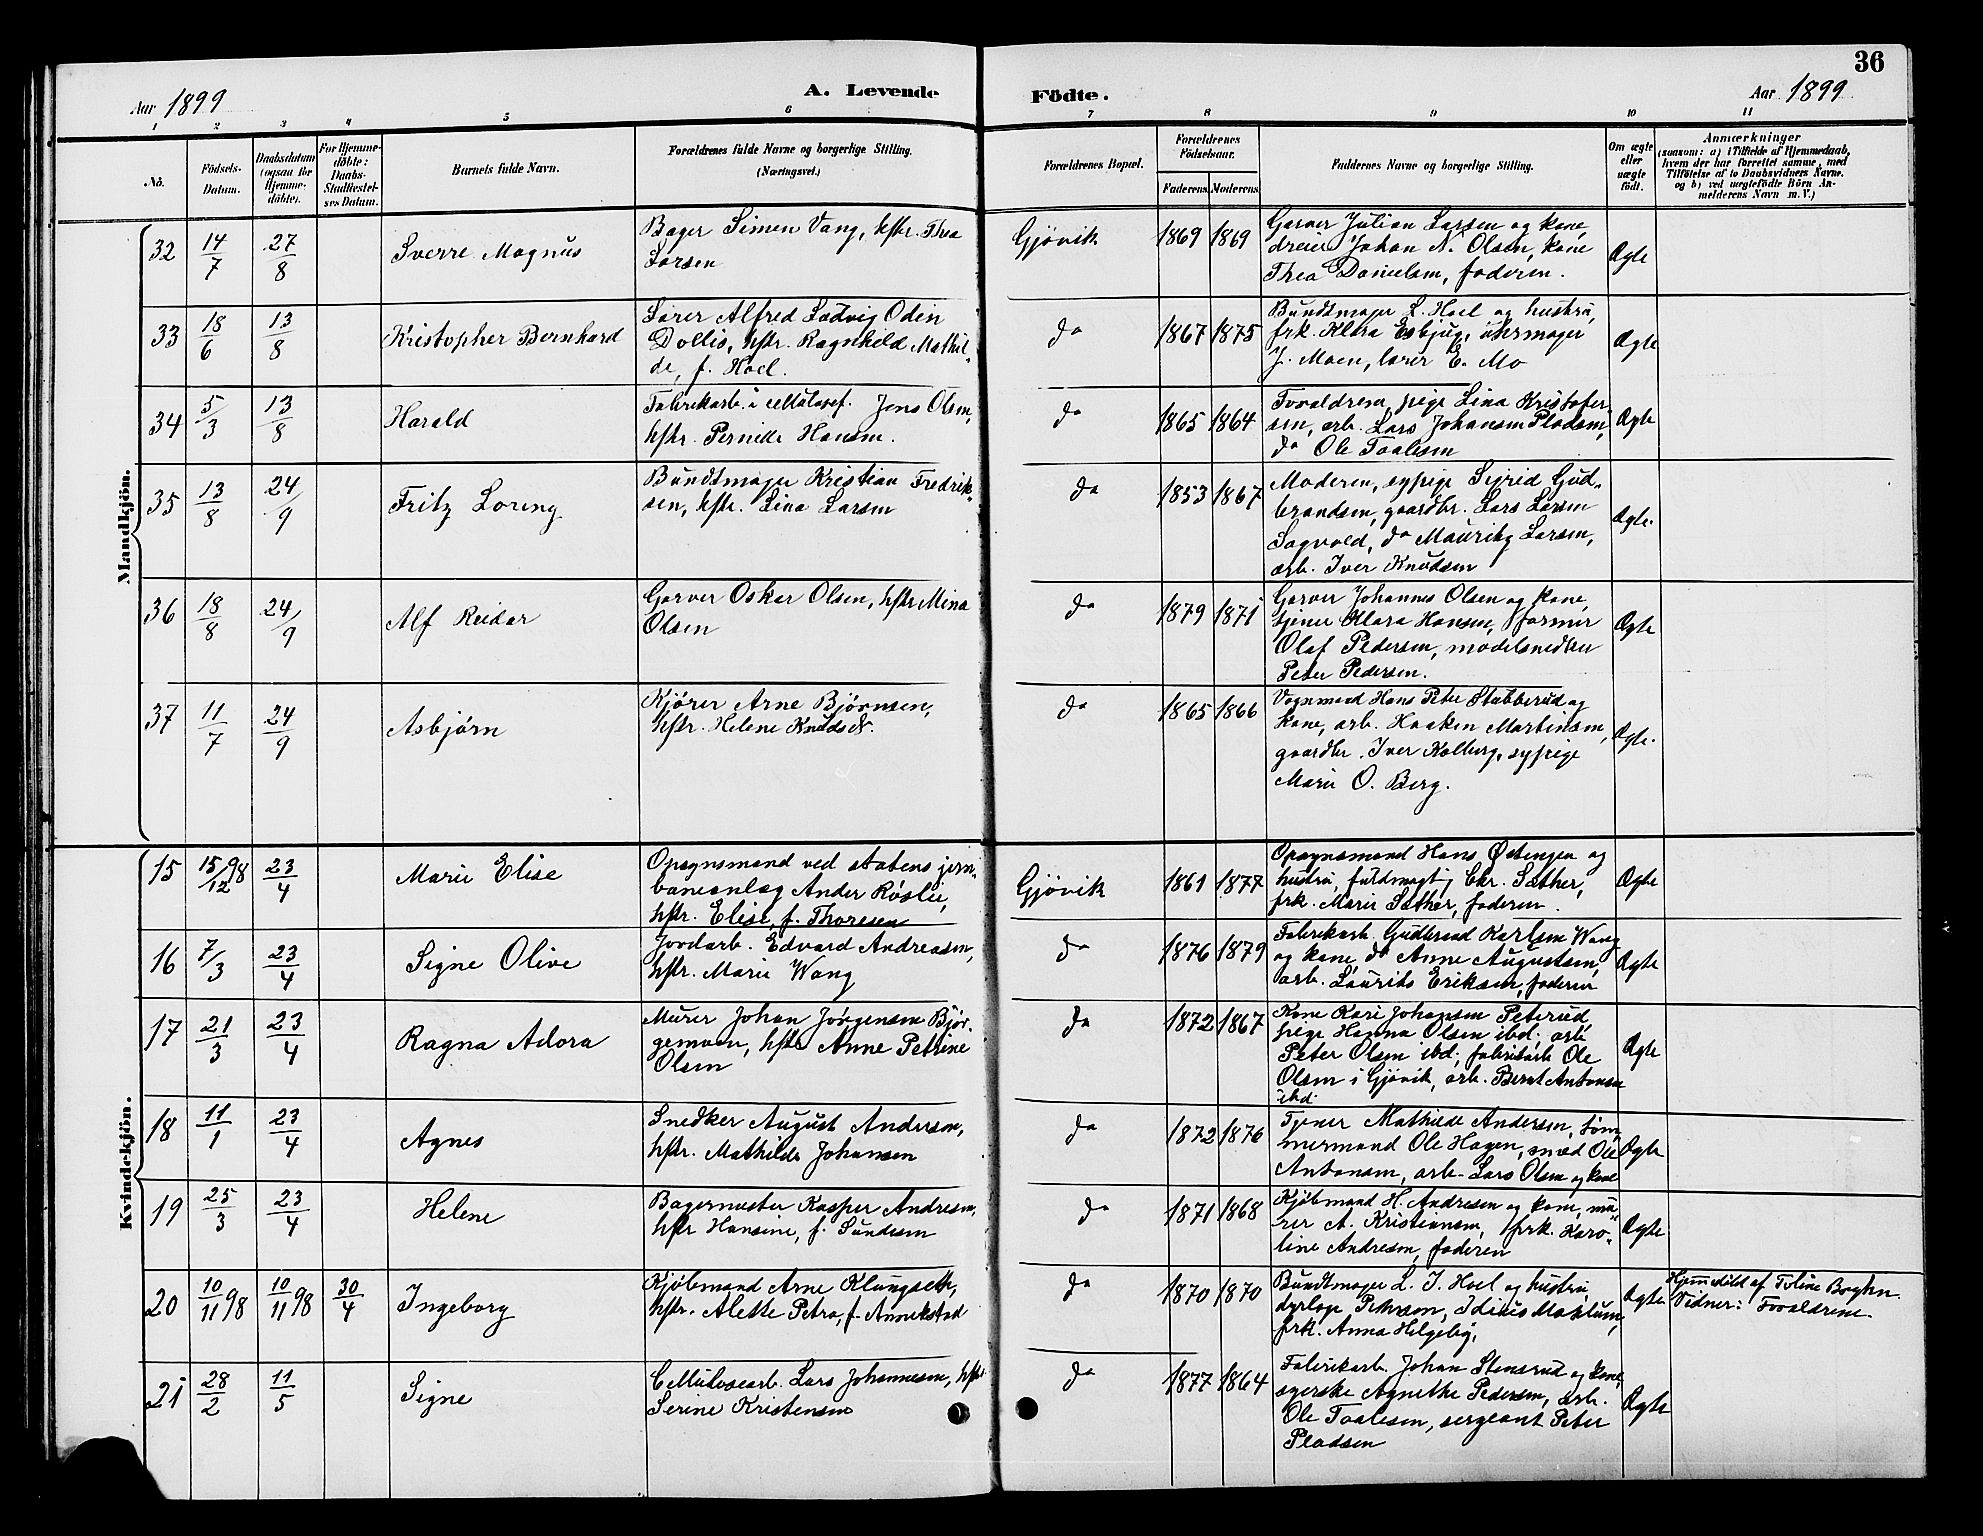 36
Aar 1899
A. Levende
Födte.
Aar 1899
1 2 3 4 5 6 7 8 9 10 11
No.
Födsels-
Datum.
Daabsdatum
(ogsaa for
Hjemme-
döbte).
For Hjemme-
döbte:
Daabs-
Stadfæstel-
ses Datum.
Barnets fulde Navn.
Forældrenes fulde Navne og borgerlige Stilling.
(Næringsvei.)
Forældrenes Bopæl.
Forældrenes
Födselsaar.
Faderens. Moderens.
Faddernes Navne og borgerlige Stilling.
Om ægte
eller
uægte
födt.
Anmærkninger
(saasom: a) i Tilfælde af Hjemmedaab,
hvem der har forrettet samme, med
Tilföielse af to Daabsvidners Navne,
og b) ved uægtefödte Börn An-
melderens Navn m.V.)
Mandkjön.
32 14/7 27/8 Sverre Magnus
Bager Simen Vang, hstr. Thea
Larsen
Gjövik 1869 1869
Garver Julian Larsen og kone,
dreier Johan N. Olsen, kone
Thea Danielsen, faderen.
Ægte
33 18/6 13/8 Kristopher Bernhard
Lærer Alfred Ludvig Odin
Dollis, hstr. Ragnhild Mathil-
de, f. Hoel.
do 1867 1875
Bundtmager L. Hoel og hustru,
frk. Klara Esbjug, uhrmager
J. Moen, lærer E. Mo
Ægte
34 5/3 13/8 Harald
Fabrikarb. i cellulosef. Jens Olsen,
hstr. Pernille Hansen.
do 1865 1864
Forældrene, pige Lina Kristofer-
sen, arb. Lars Johansen Pladsen,
do Ole Taalesen
Ægte
35 13/8 24/9 Fritz Loreng
Bundtmager Kristian Fredrik-
sen, hstr. Lina Larsen
do 1853 1867
Moderen, sypige Sigrid Gud-
brandsen, gaardbr. Lars Larsen
Sagvold, do Mauritz Larsen,
arb. Iver Knudsen
Ægte.
36 18/8 24/9 Alf Reidar
Garver Oskar Olsen, hstr Mina
Olsen
do 1879 1871
Garver Johannes Olsen og kone,
tjener Klara Hansen, former
Olaf Pedersen, modelsnedker
Peter Pedersen.
Ægte
37 11/7 24/9 Asbjørn
Kjører Arne Bjørnsen,
hstr. Helene Knudsdr.
do 1865 1866
Vognmand Hans Peter Stubberud og
kone, arb. Haaken Martinsen,
gaardbr. Iver Kolberg, sypige
Marie O. Berg.
Ægte.
Kvindekjön.
15 15/12 98 23/4 Marie Elise
Opsynsmand ved statens jern-
baneanlæg Ander Røslie,
hstr. Elise, f. Thoresen
Gjövik 1861 1877
Opsynsmand Hans Østengen og
hustru, fuldmægtig Chr. Sæther,
frk. Marie Sæther, faderen.
Ægte
16 7/3 23/4 Signe Olive
Jordarb. Edvard Andreasen,
hstr. Marie Wang
do 1876 1879
Fabrikarb. Gudbrand Karlsen Wang
og kone, do Anne Augustsen,
arb. Laurits Eriksen, faderen
Ægte
17 21/3 23/4 Ragna Adora
Murer Johan Jørgensen Bjør-
gemoen, hstr Anne Petrine
Olsen
do 1872 1867
Kone Kari Johansen Peterud,
pige Hanna Olsen ibd; arb.
Peter Olsen ibd; fabrikarb Ole
Olsen i Gjövik, arb. Bernt Antonsen
ibd.
Ægte
18 11/1 23/4 Agnes
Snedker August Andersen,
hstr. Mathilde Johansen
do 1872 1876
Tjener Mathilde Andersen, tøm-
mermand Ole Hagen, smed Ole
Antonsen, arb. Lars Olsen og kone
Ægte
19 25/3 23/4 Helene
Bagermester Kasper Andresen,
hstr Hansine, f. Sundsen
do 1871 1868
Kjøbmand H. Andresen og kone, mu-
rer A. Kristiansen, frk. Karo-
line Andresen, faderen
Ægte
20 10/11 98 10/11 98 30/4 Ingeborg
Kjøbmand Arne Klungseth,
hstr. Alette Petra, f.
do 1870 1870
Bundtmager L. J. Hoel og hustru,
dyrlæge Petersen,
frk. Anna
Ægte
Hjemmedöbt af Toline
Vidner: Forældrene.
21 28/2 11/5 Signe
Cellulosearb. Lars Johannesen, hstr
Serine Kristensen
do 1877 1864
Fabrikarb. Johan Stensrud og kone,
syerske Agnethe Pedersen, arb.
Ole Taalesen, sergeant Peter
Pladsen
Ægte